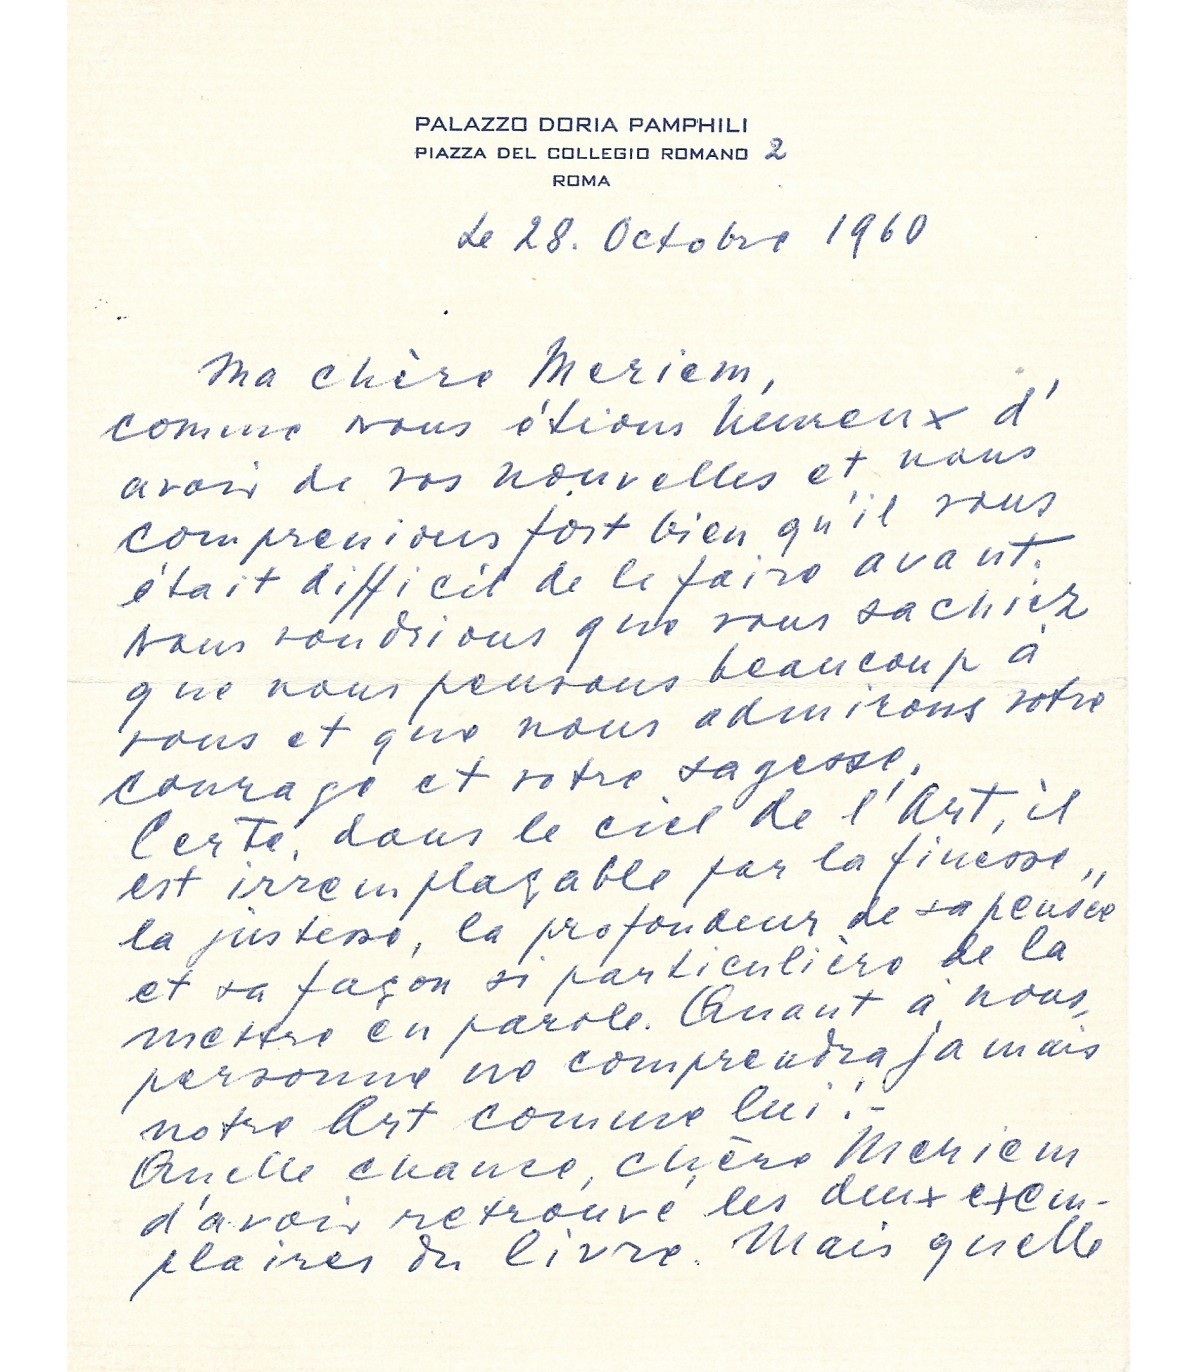 PALAZZO DORIA PAMPHILI
PIAZZA DEL COLLEGIO ROMANO 2
ROMA
Le 28. Octobre 1960
Ma chère Meriem,
comme nous étions heureux d'
avoir de vos nouvelles et nous
comprenions fort bien qu'il vous
était difficil de le faire avant.
Nous voudrions que vous sachiez
que nous pensons beaucoup à
vous et que nous admirons votre
courage et votre sagesse.
Certe, dans le ciel de l'Art, il
est irremplaçable par la finesse,,
la justesse, la profondeur de sa pensée
et sa façon si particulière de la
mettre en parole. Quant à nous,
personne ne comprendra jamais
notre Art comme lui!-
Quelle chance, chère Meriem
d'avoir retrouvé les deux exem-
plaires du livre. Mais quelle